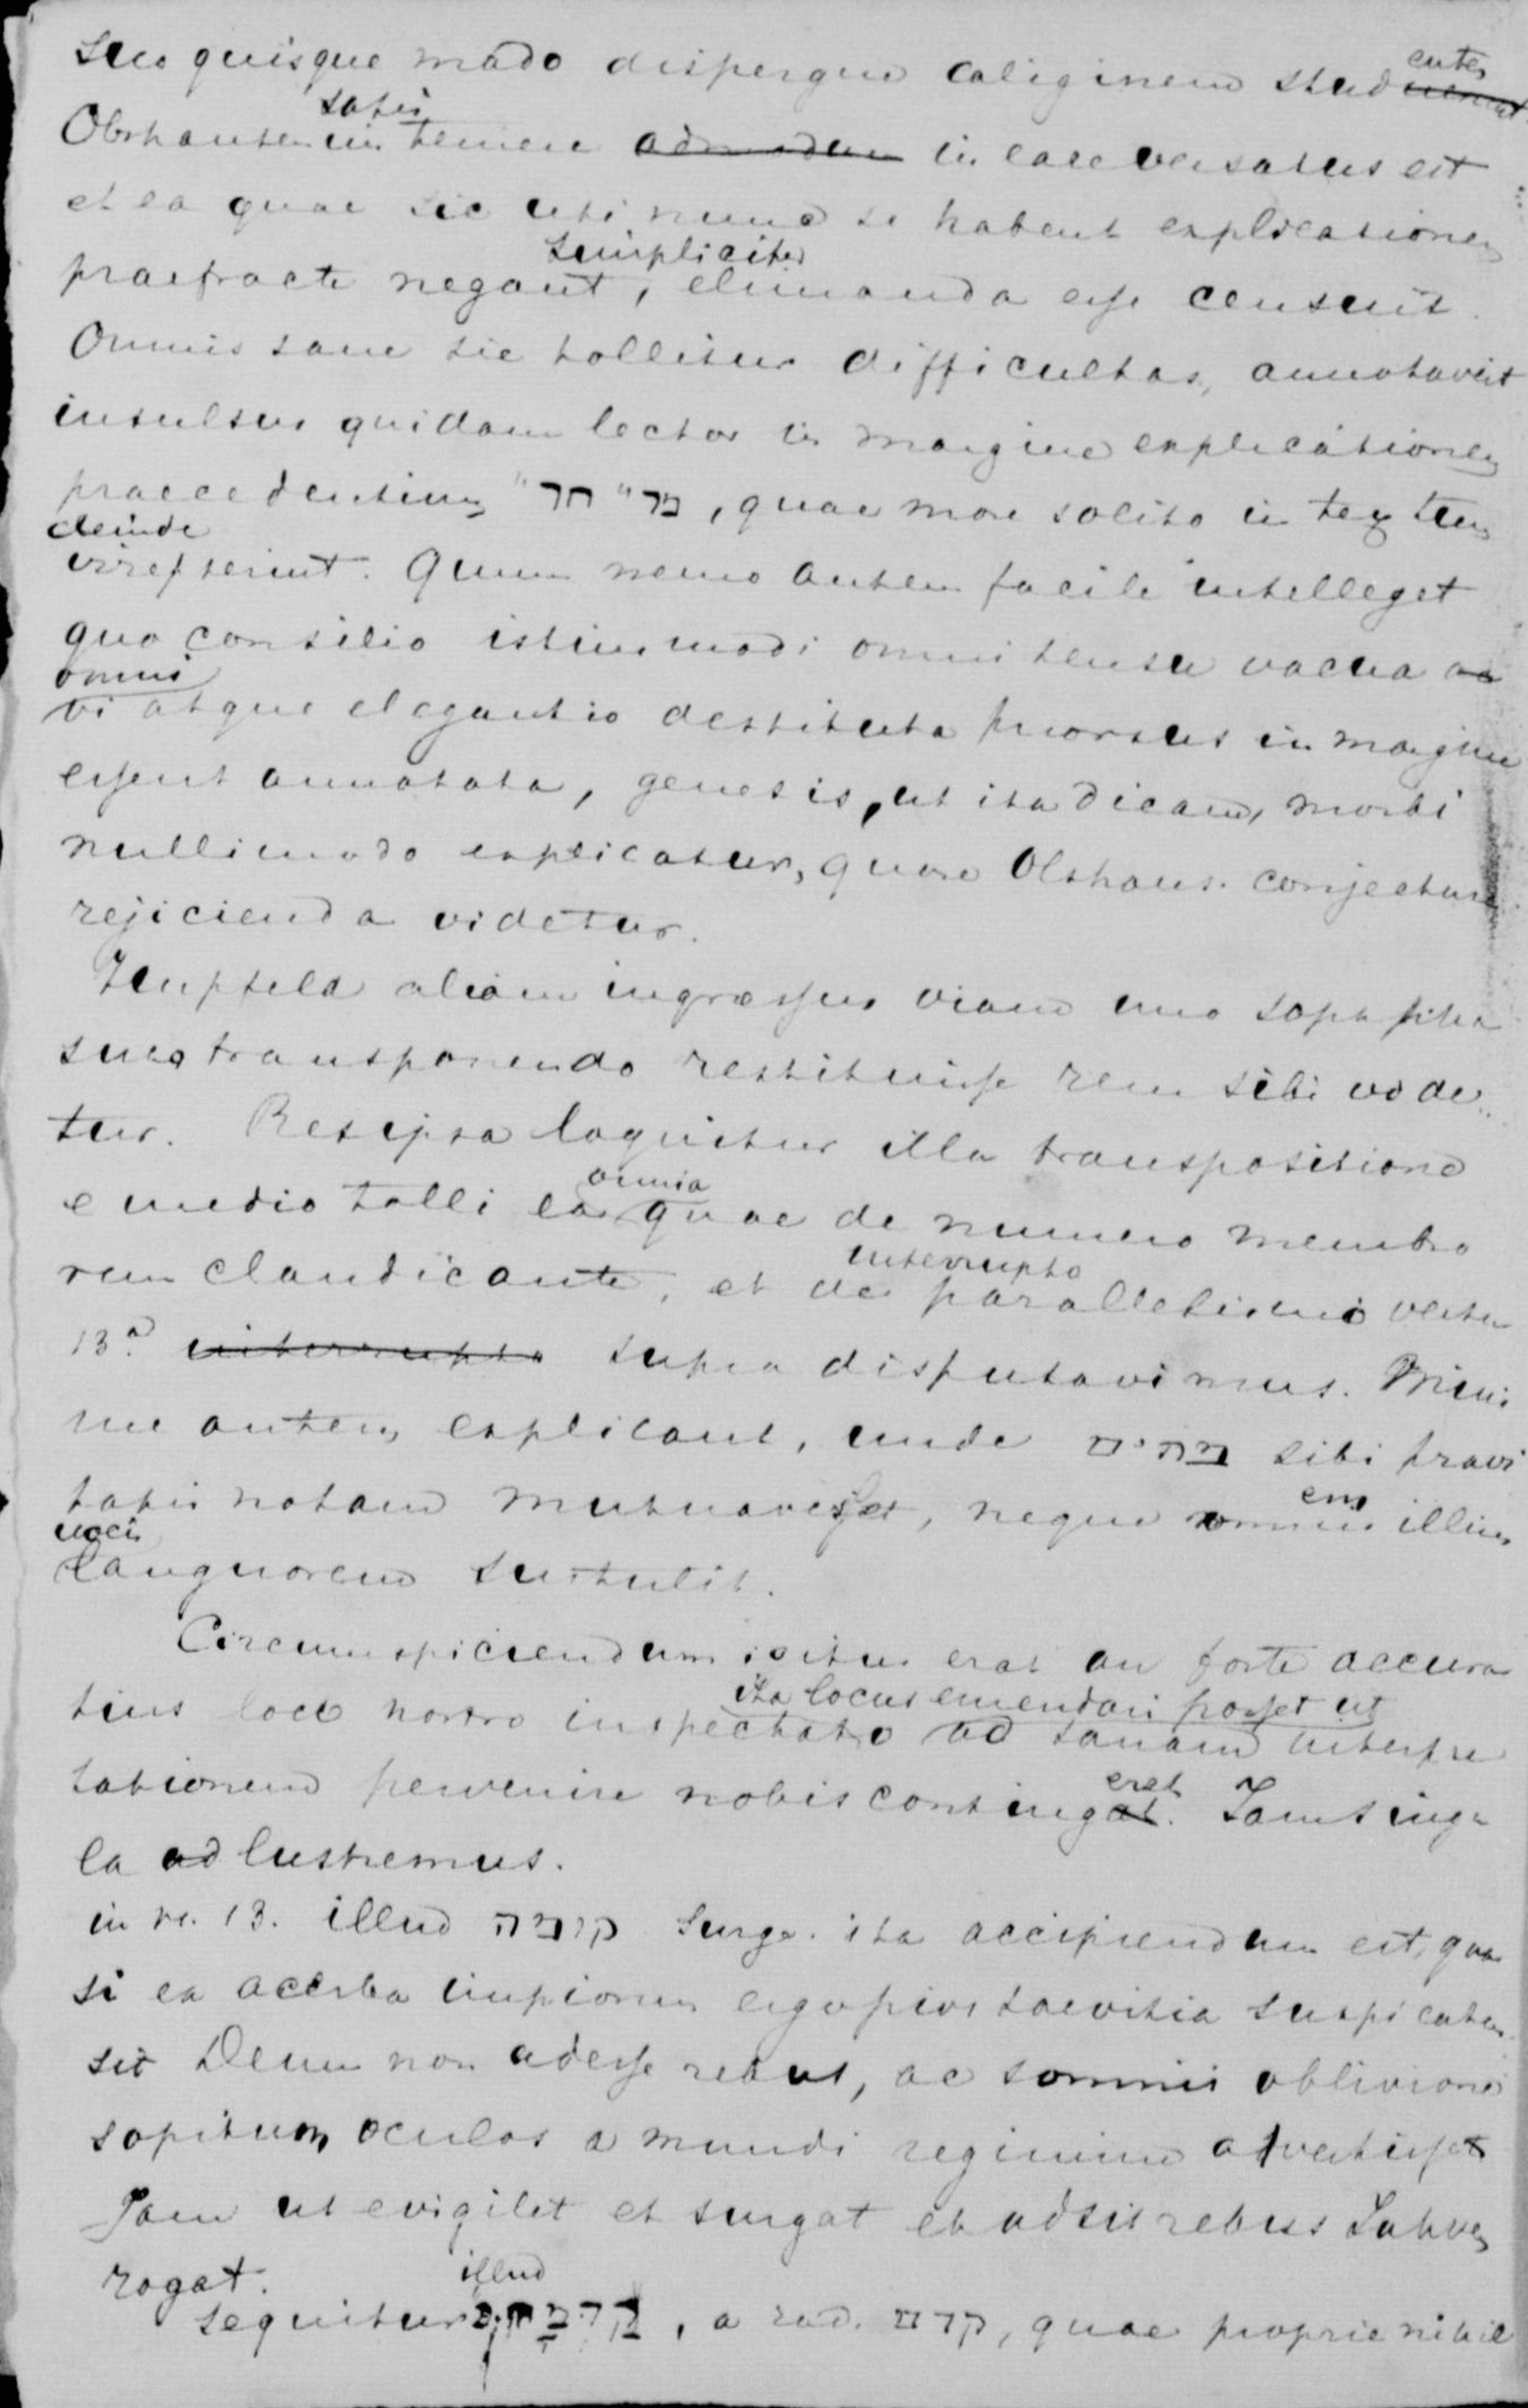 suo quisque modo dispergere caliginem studentes
Olshausenius satis temere admodum in eare versatus est
et ea quae sic uti nunc se habent explicationem
praefracte negant, simpliciter elimanda esse censuit.
Omnis sane sic tollitur difficultas, annotavit
insulsus quidam lector in margine explicationem
praecedentium "מר" חר, quae more solito in textum
deinde irrepserint. Quum nemo autem facile intelleget
quo consilio istiusmodi omni sensu vacua ac
omni vi atque elegantia destituta prorsus in margine
essent annotata, genesis, ut ita dicam, morbi
nullimodo explicatur, quare Olshaus. conjectura
rejicienda videtur.
Hupfeld aliam ingressus viam uno
suo transponendo restituisse rem sibi vide
tur. Res ipsa loquitur illa transpositione
e medio tolli ea omnia quae de numero membro
rum claudicante, et de interrupto parallelismo versu
13ᵃ. interrupto supra disputavimus. Mini
me autem explicant, unde מתים sibi pravi
tatis notam mutuavisset, neque omnem illius
vocis languorem sustulit.
Circumspiciendum igitur erat an forte accura
tius loco nostro inspectato ita locus emendari posset ut ad sanam interpre
tationem pervenire nobis contingeret. Jam singu
la ad lustremus.
in vs. 13. illud קומה surge. ita accipiendum est, qua
si ex acerba impiorum erga pios saevitia suspicatus
sit Deum non adesse rebus, ac somnii oblivione
sopitum oculos a mundi regimine advertisset
Jam ut evigilet et surgat et adsit rebus Jahve
rogat.
sequitur illud קדמה, a rad. קדם, quae proprie nihil